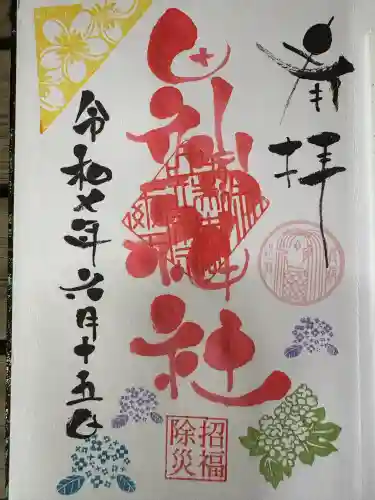 奉拝
神社
令和七年六月十五日
招福
除災